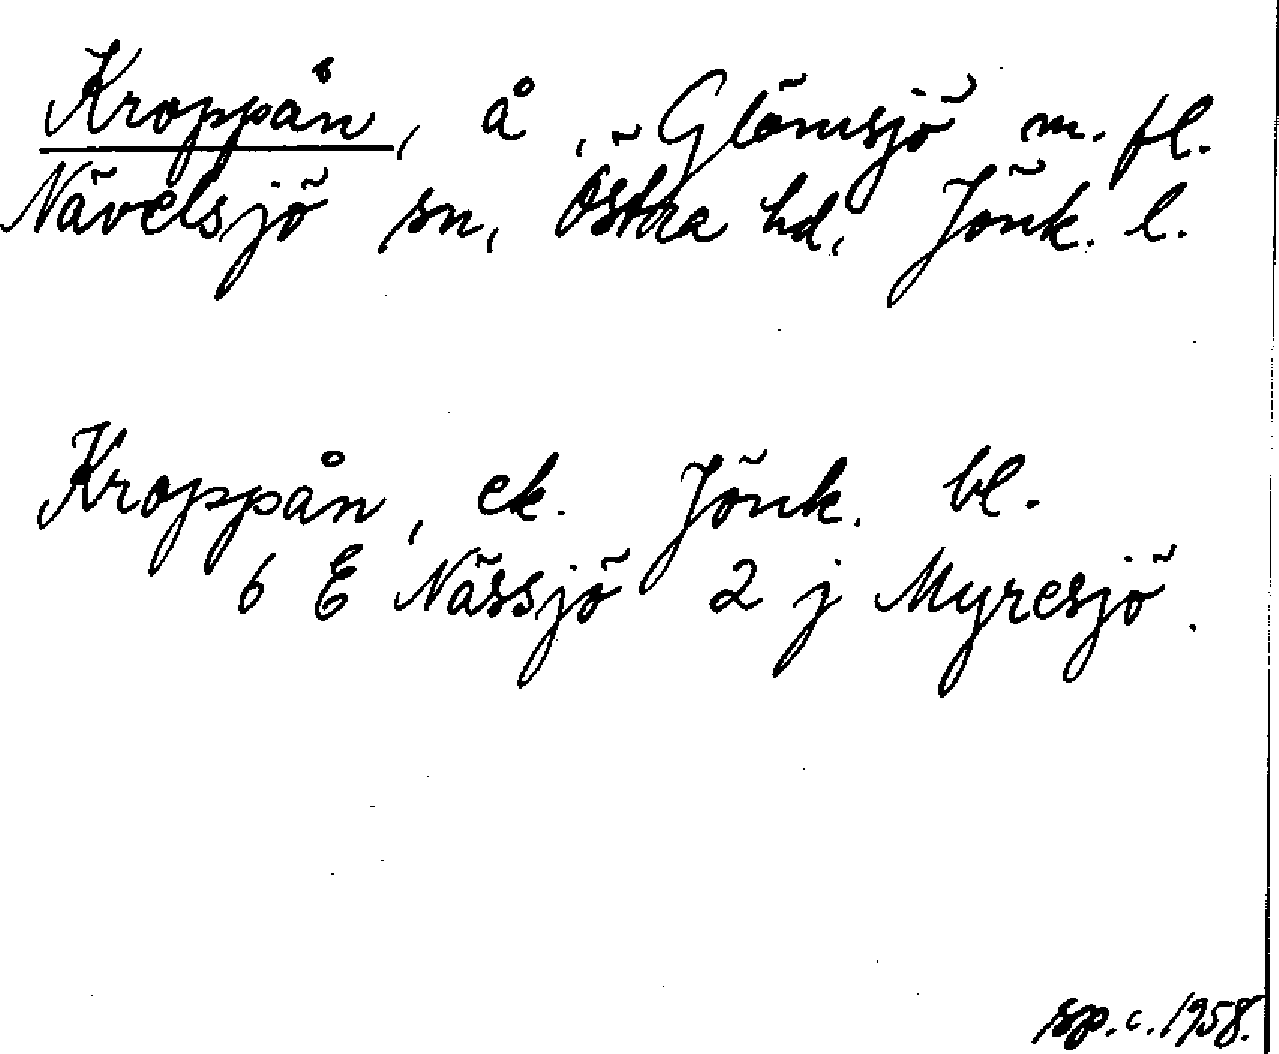 Kroppån, å, Glömsjö m. fl.
Nävelsjö sn, Östra hd, Jönk. l.
Kroppån, ek. Jönk. bl.
6 E Nässjö 2 j Myresjö.
sp. c. 1958.